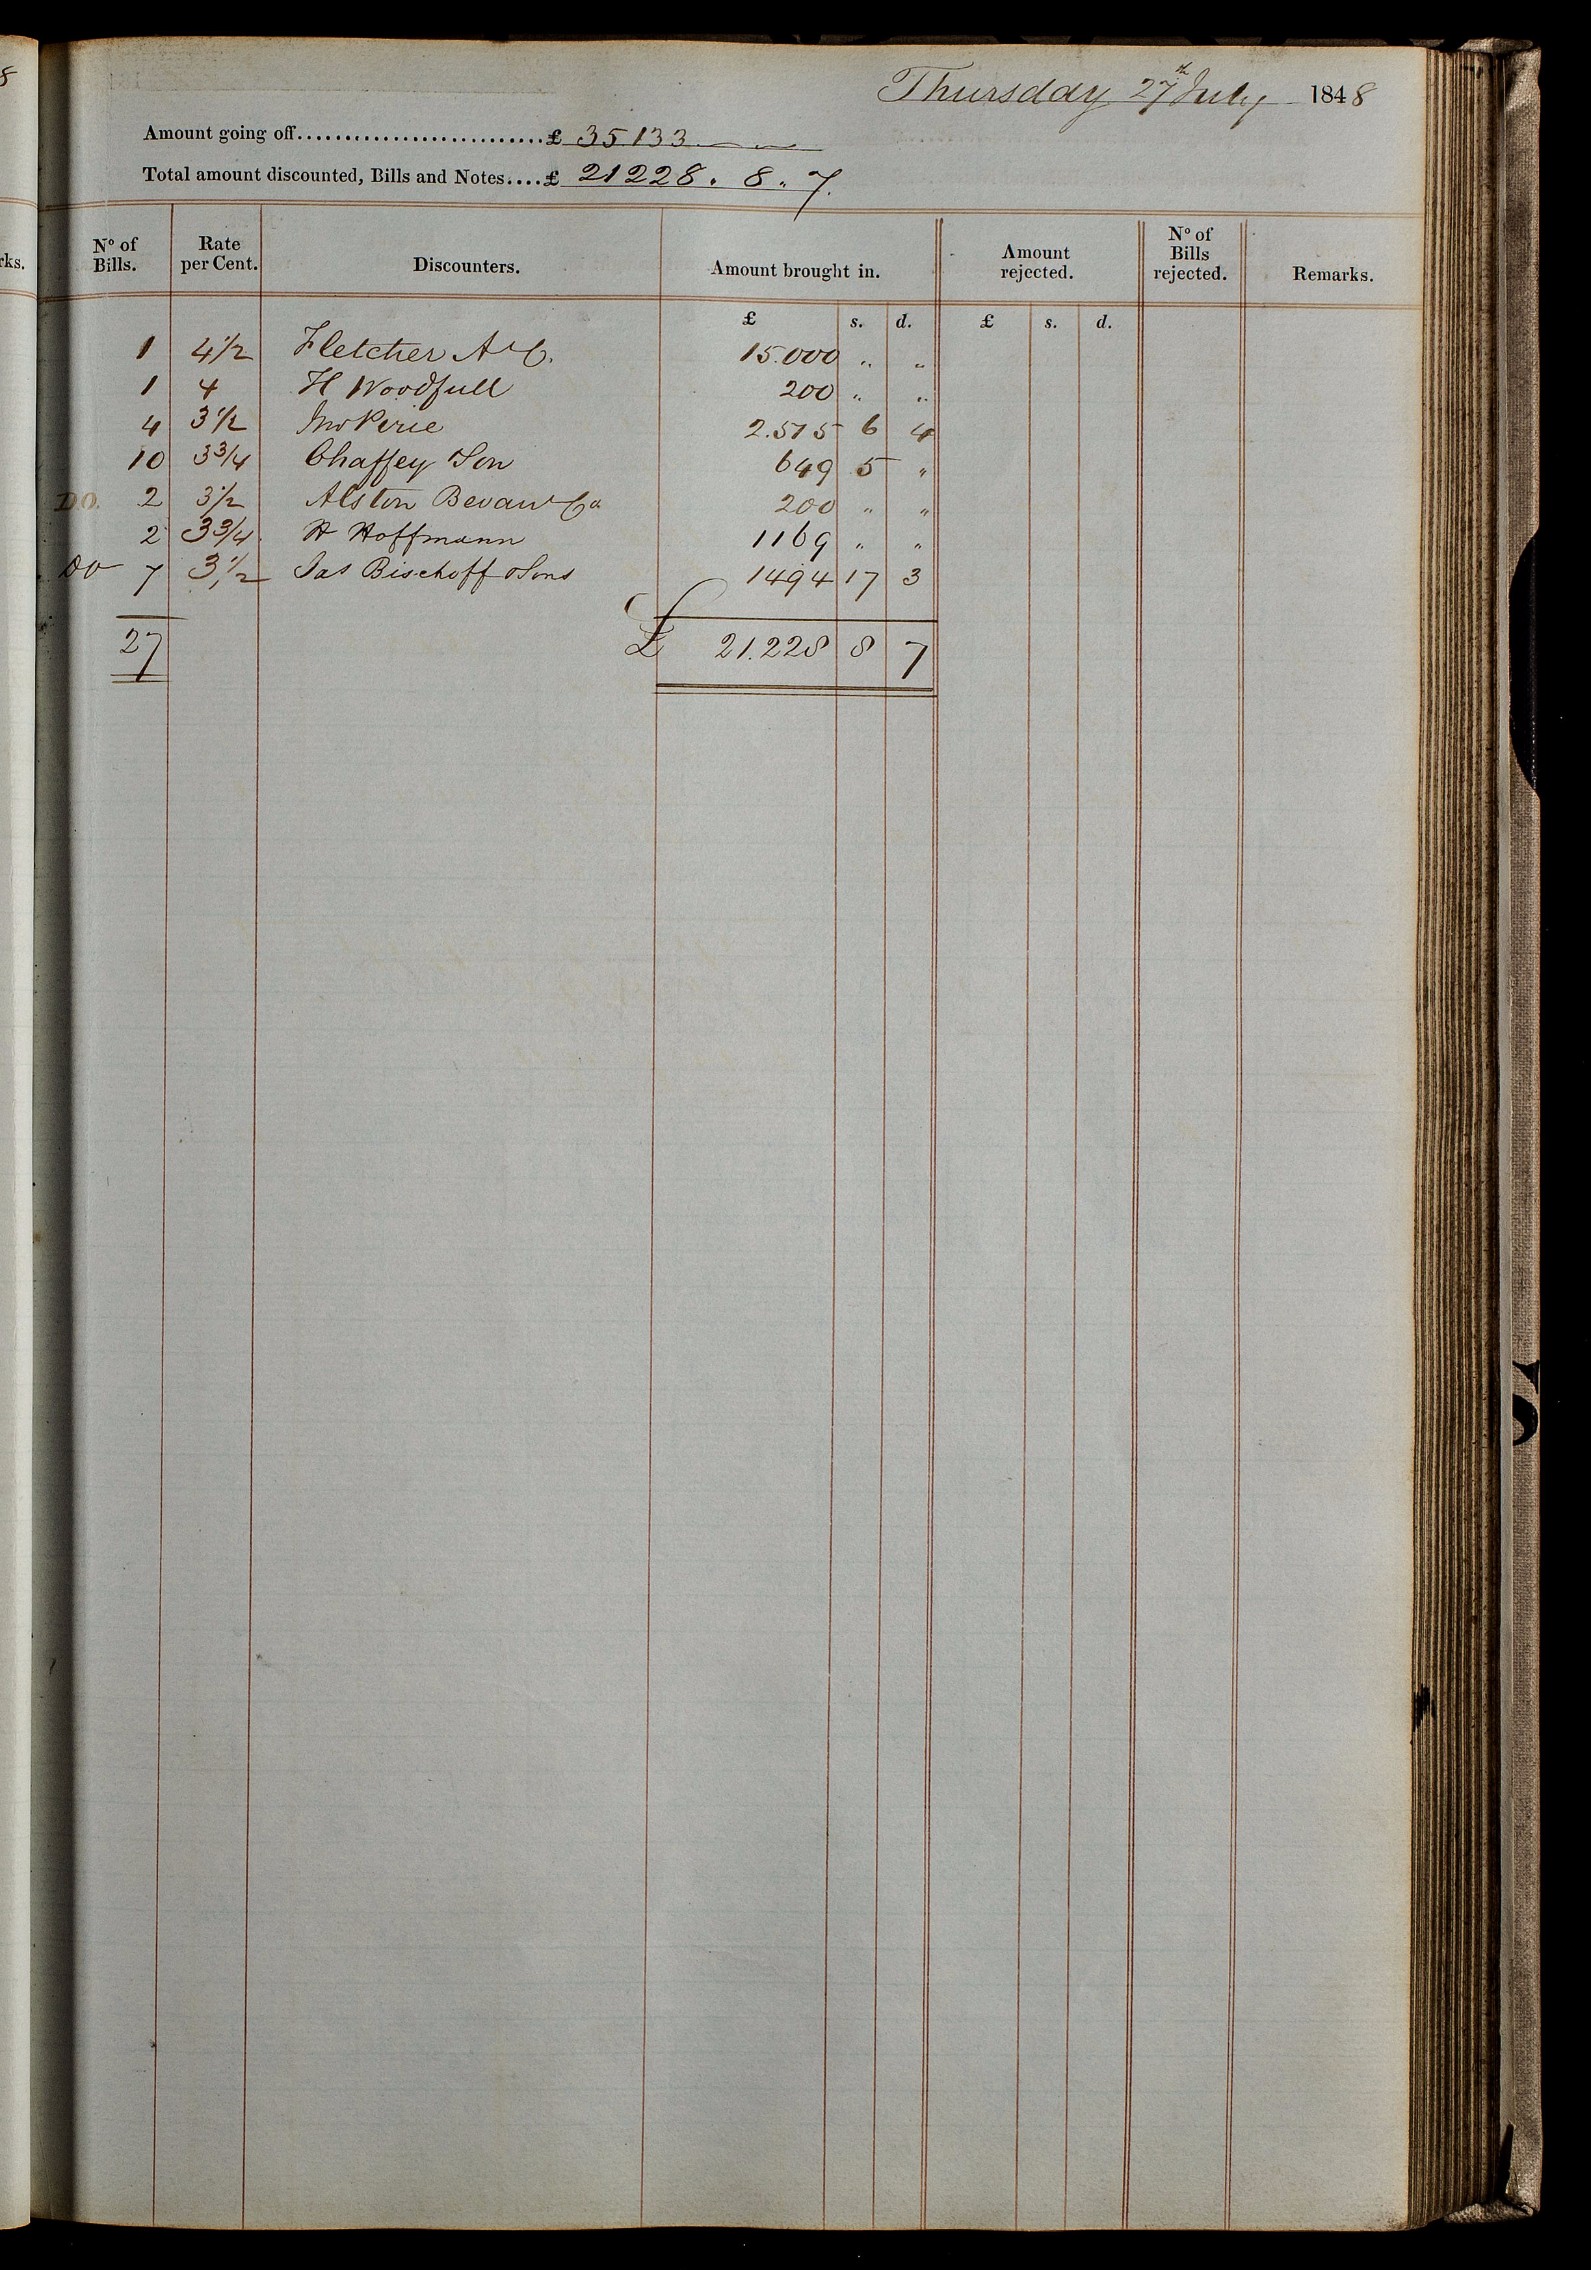 8
Thursday 27th July 1848
Amount going off..........................£ 35133
Total amount discounted, Bills and Notes....£ 21228. 8. 7.
rks.
No of Bills. Rate per Cent. Discounters. Amount brought in. Amount rejected. No of Bills rejected. Remarks.
£ s. d. £ s. d.
1 4 1/2 Fletcher A & C. 15.000 " "
1 4 H Woodfull 200 " "
4 3 1/2 Jno Pirie 2.515 6 4
10 3 3/4 Chaffey Son 649 5 "
Do. 2 3 1/2 Alston Bevan & Co 200 " "
2 3 3/4 H Hoffmann 1169 " "
Do 7 3 1/2 Jas Bischoff & Sons 1494 17 3
27 £ 21.228 8 7